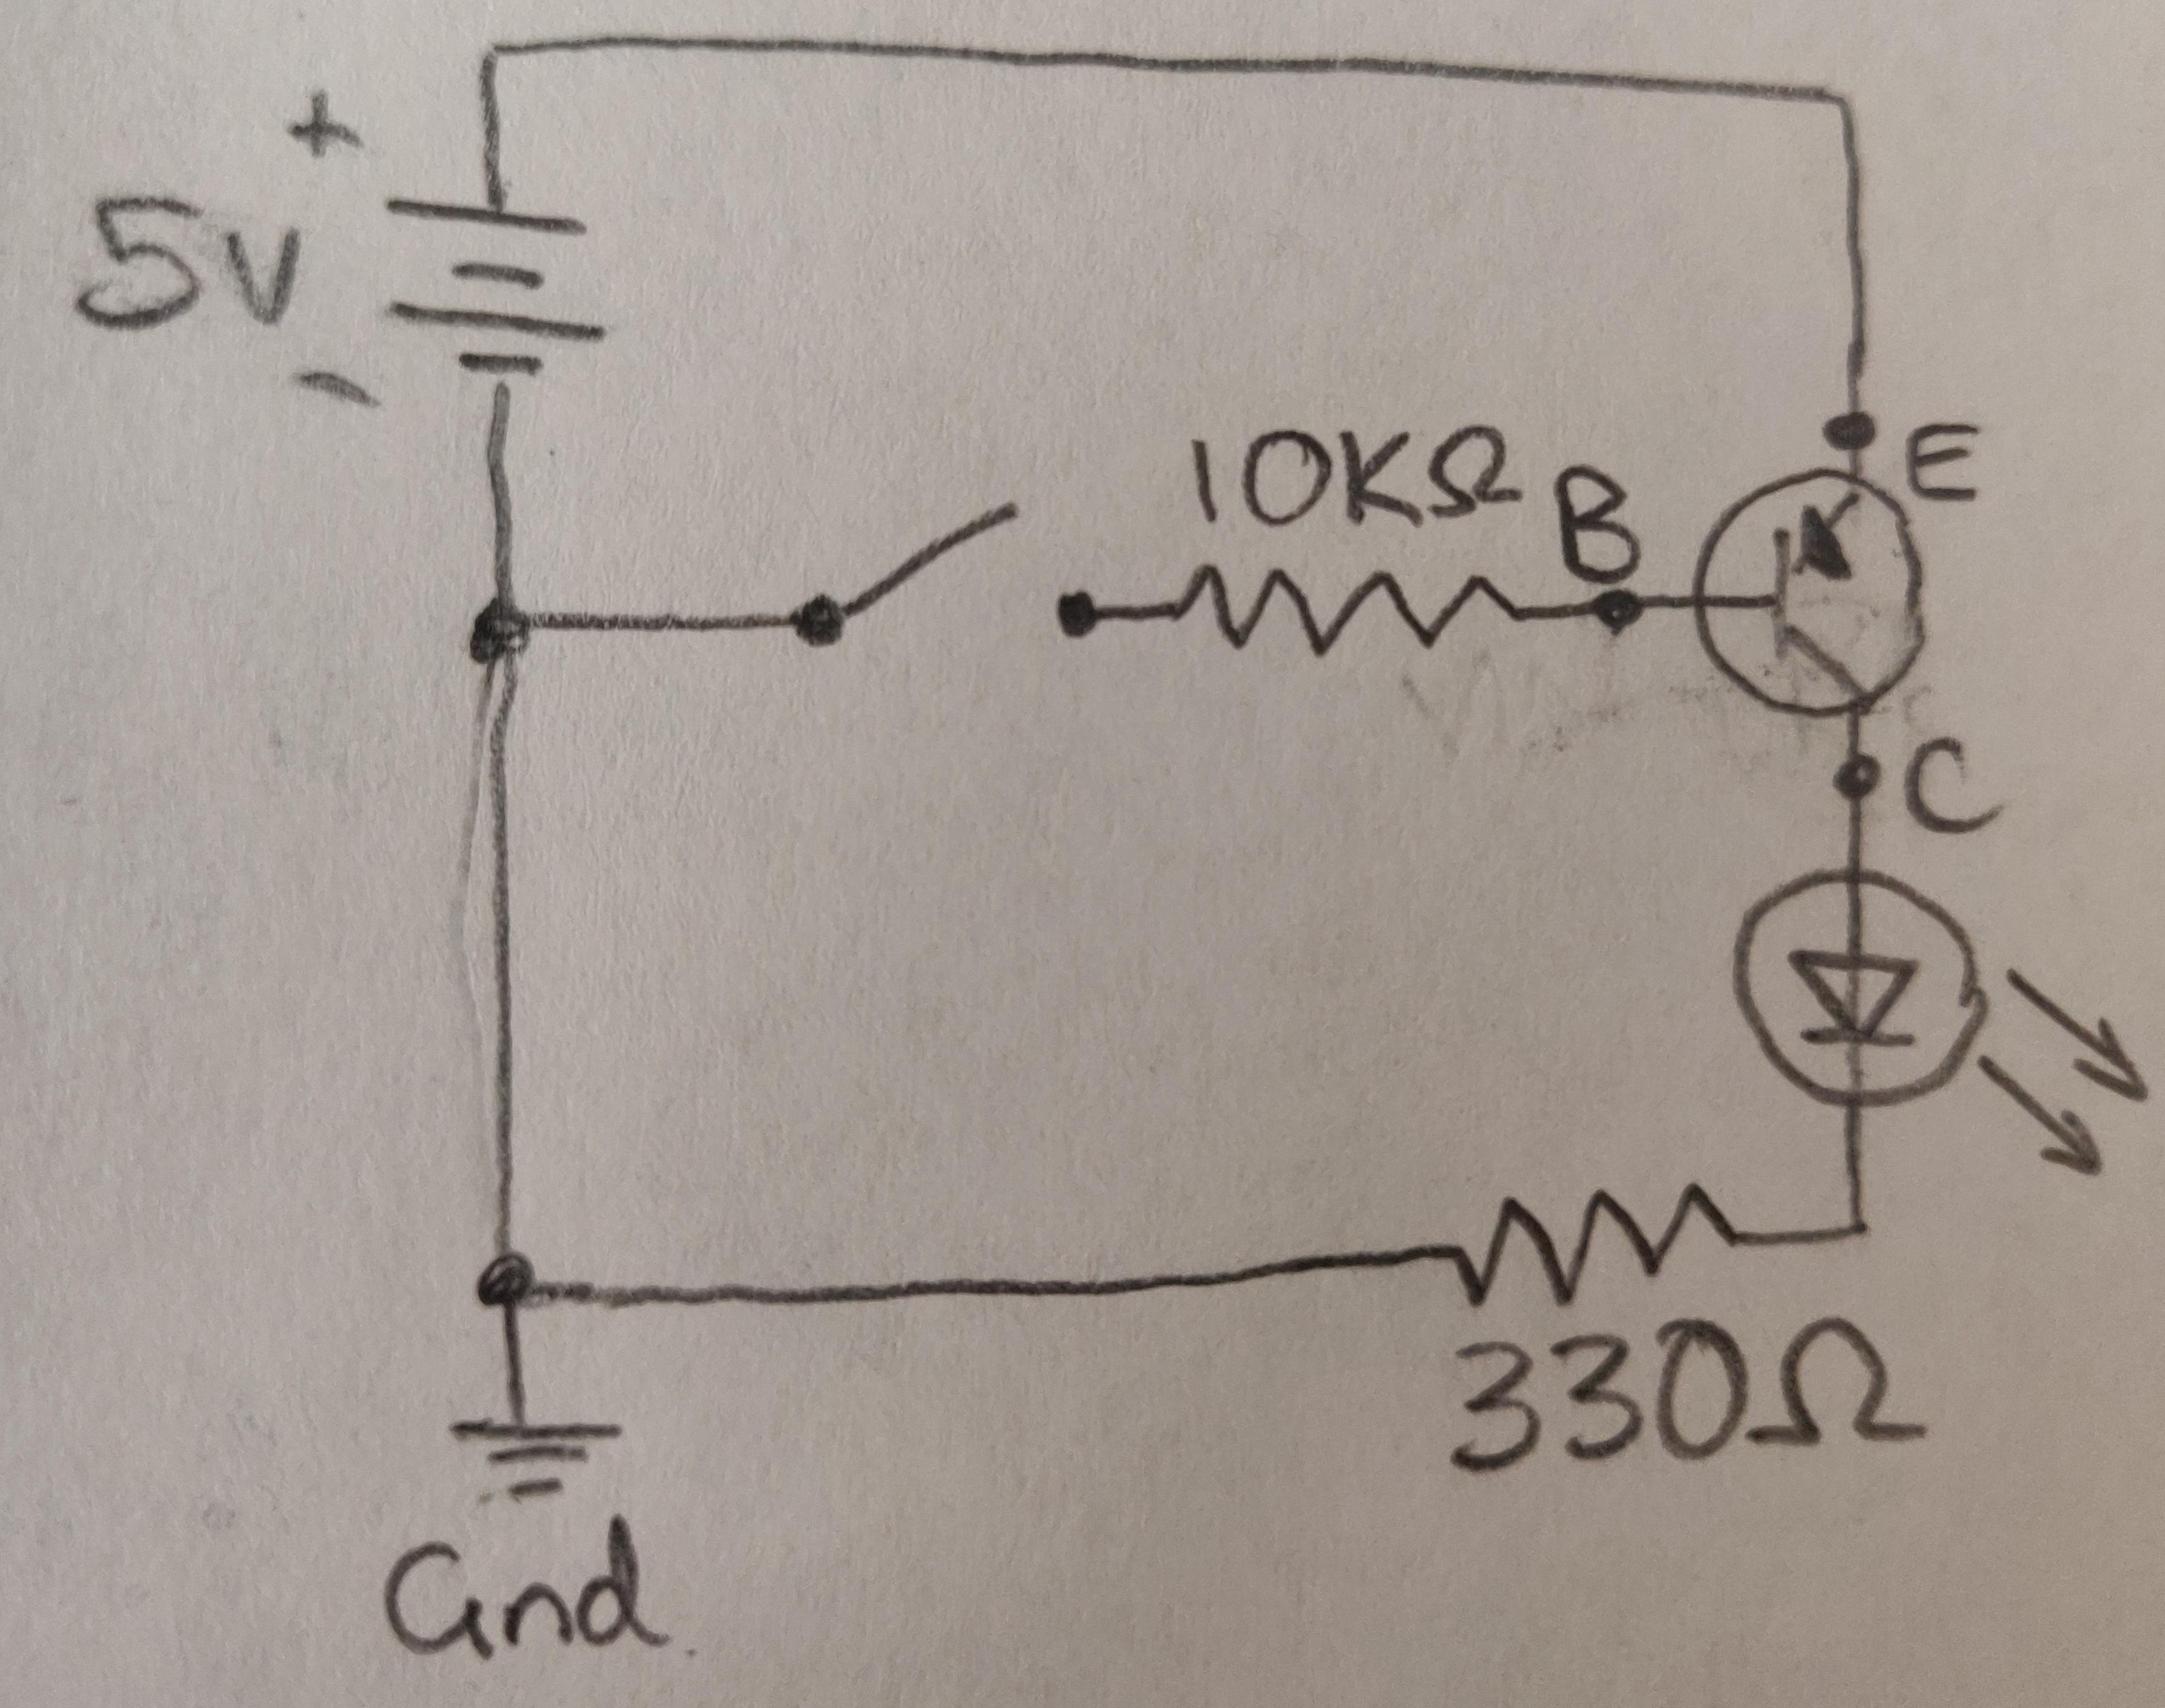 +
5V
-
10KΩ
B
E
C
330Ω
Gnd